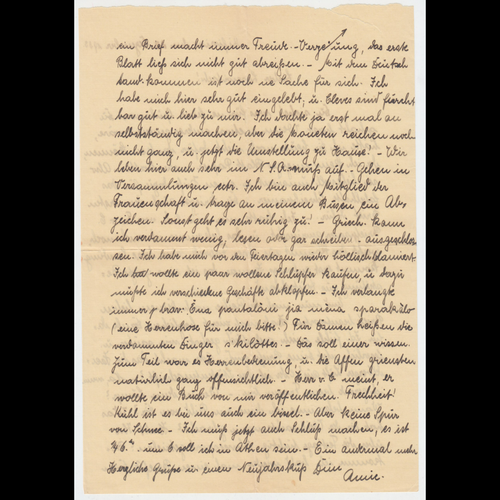 ein Brief macht immer Freude. - Verzeihung, das erste
Blatt ließ sich nicht gut abreißen. - Mit dem Deutsch
land-kommen ist noch ne Sache für sich. Ich
habe mich hier sehr gut eingelebt, u. Cleves sind furcht
bar gut u. lieb zu mir. Ich dachte ja erst mal an
selbstständig machen, aber die Moneten reichen noch
nicht ganz, u. jetzt die Umstellung zu Hause! - Wir
leben hier auch sehr im N.S. auf. - Gehen in
Versammlungen ectr. Ich bin auch Mitglied der
Frauenschaft u. trage an meinem Busen ein Ab-
zeichen. Sonst geht es sehr ruhig zu! - Griech. kann
ich verdammt wenig, lesen oder gar schreiben - ausgeschlos-
sen. Ich habe mich vor den Feiertagen wieder höllisch blamiert.
Ich wollte ein paar wollene Schlüpfer kaufen, u. dazu
mußte ich verschiedene Geschäfte abklopfen. - Ich verlangte
immer brav: Ena pantalóni jia ména sparakaló
(eine Herrenhose für mich bitte!) Für Damen heißen die
verdammten Dinger s'kilóttes. - Das soll einer wissen.
Zum Teil war es Herrenbedienung, u. die Affen grinsten
natürlich ganz offensichtlich. - Herr v. C meint, er
wollte ein Buch von mir veröffentlichen. Frechheit!
Kühl ist es bei uns auch ein bissel. - Aber keine Spur
von Schnee. - Ich muß jetzt auch Schluß machen, es ist
um 6 soll ich in Athen sein. - Ein andermal mehr
Herzliche Grüße u. einen Neujahrskuß Dein
Annie.